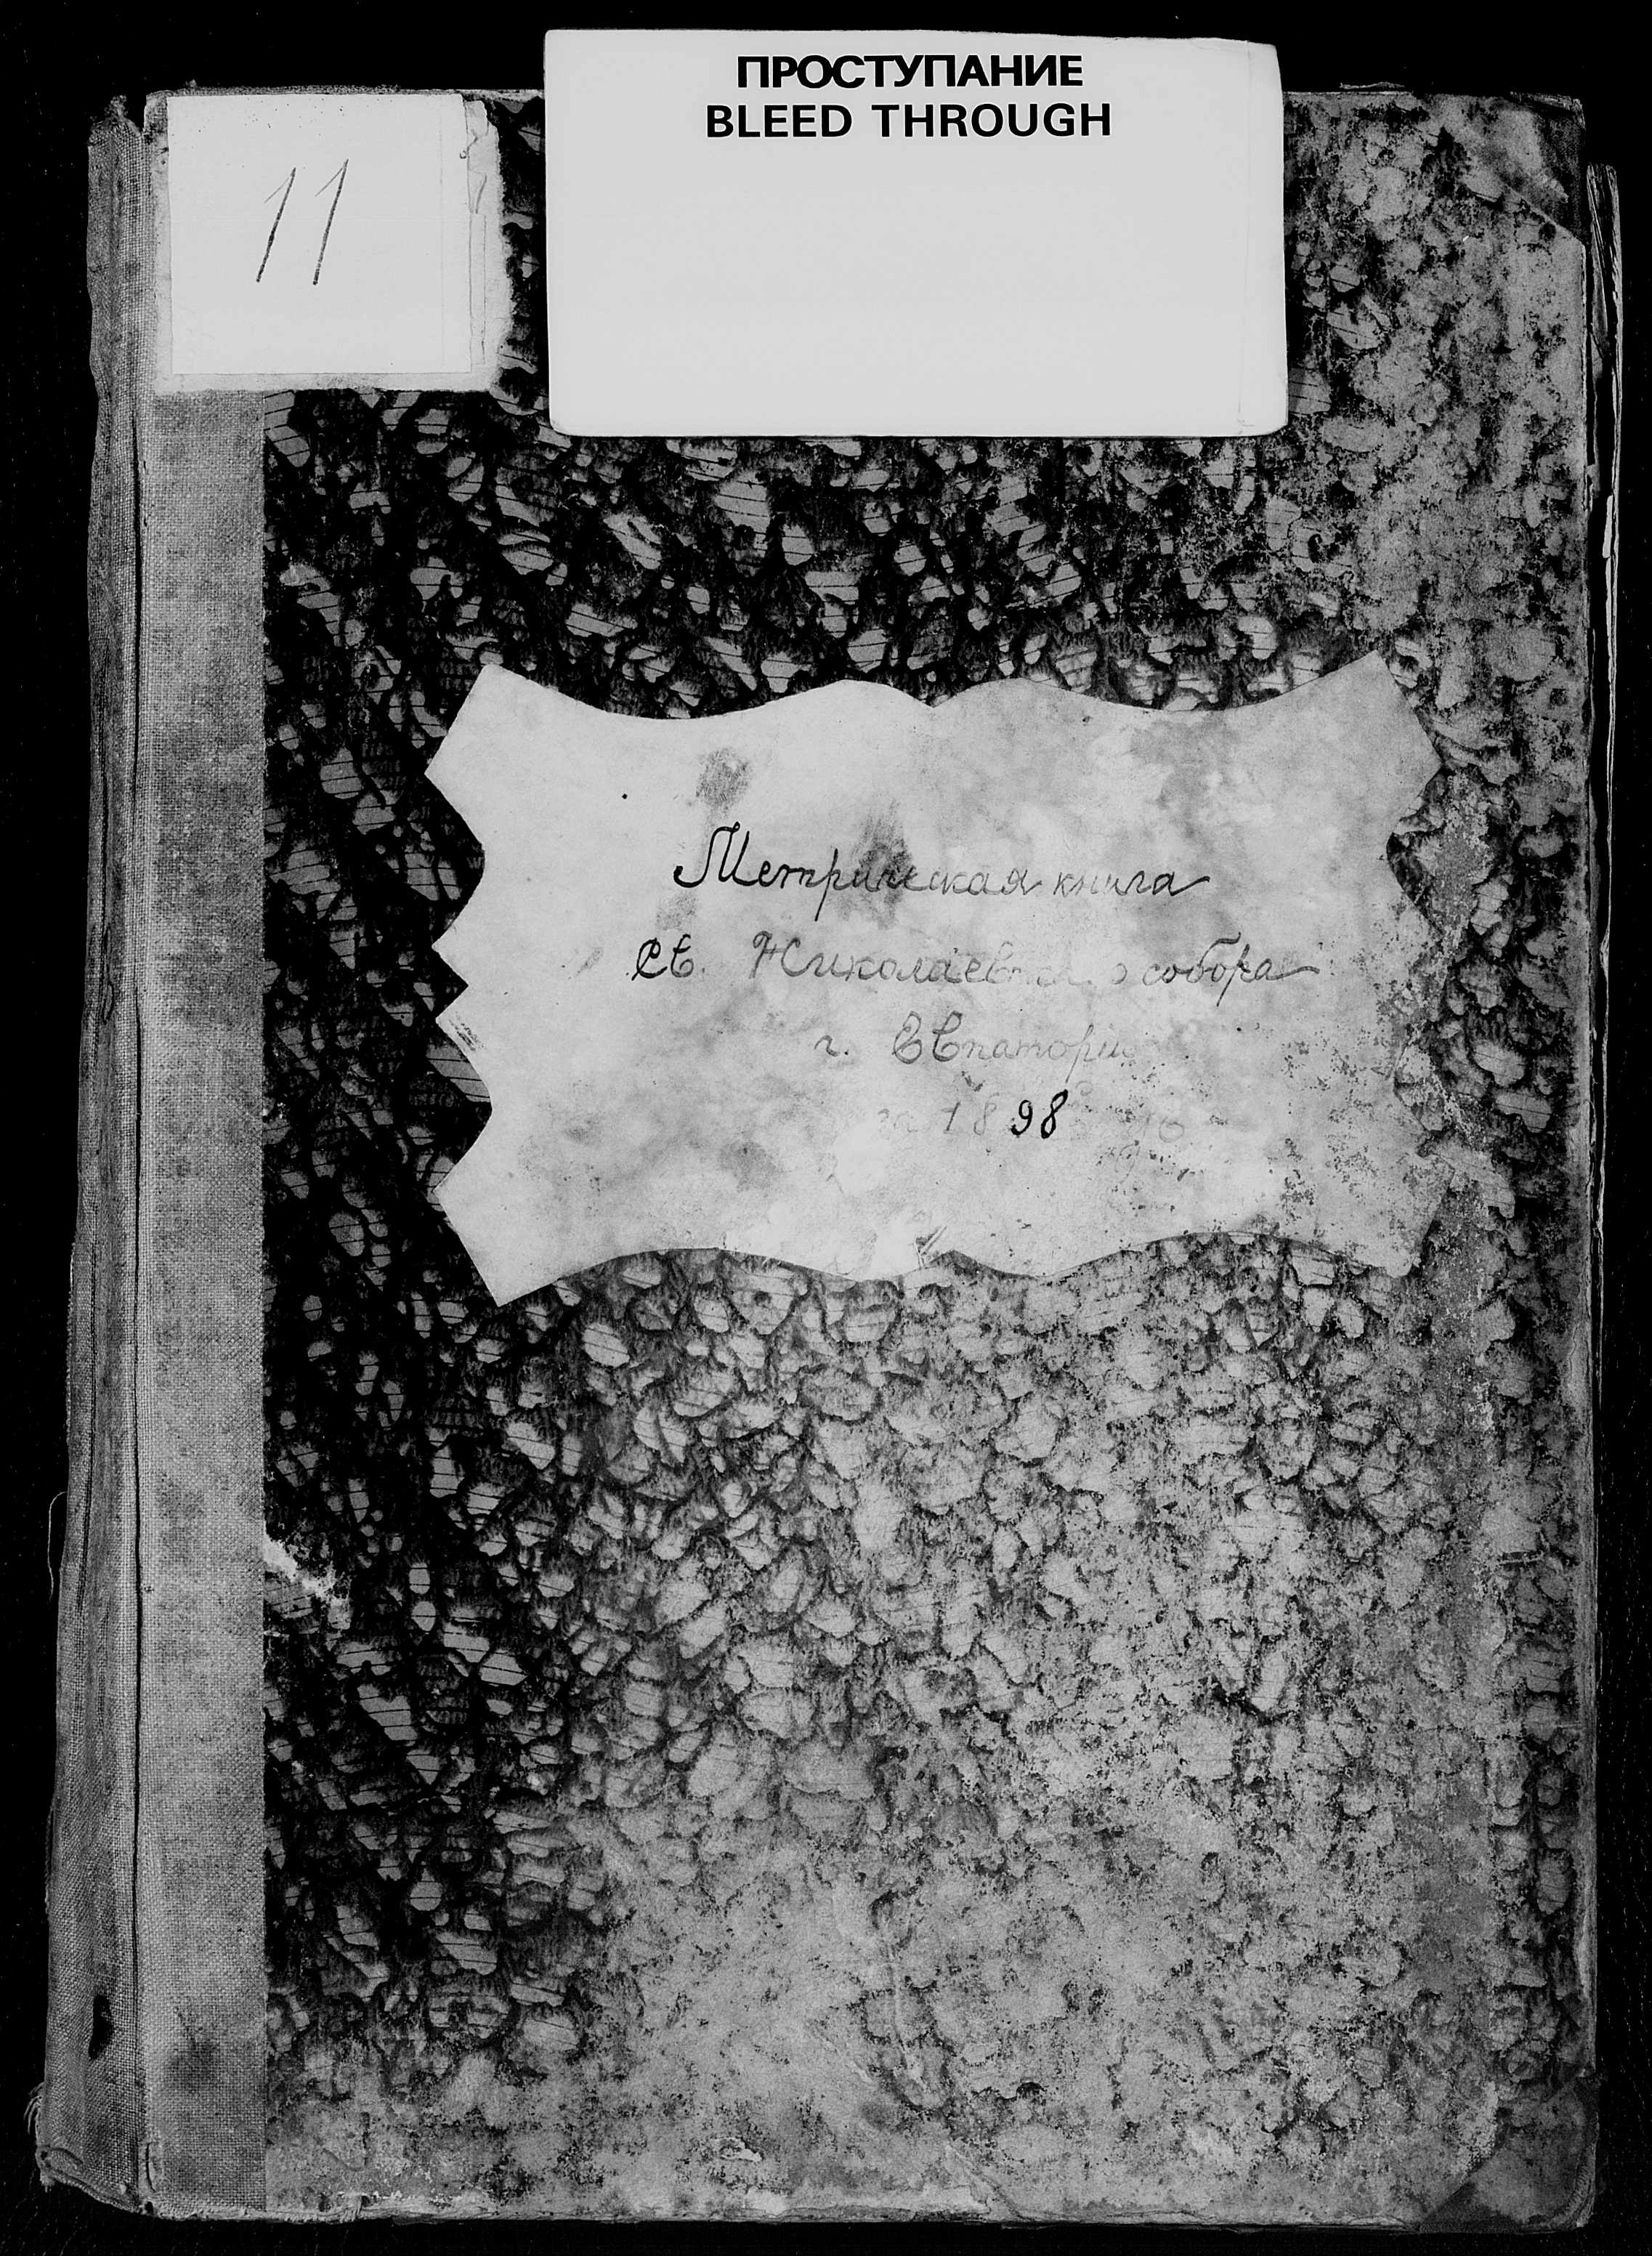 ПРОСТУПАНИЕ
BLEED THROUGH
11
Метрическая книга
Св. Николаевского собора
г. Евпатории
1898